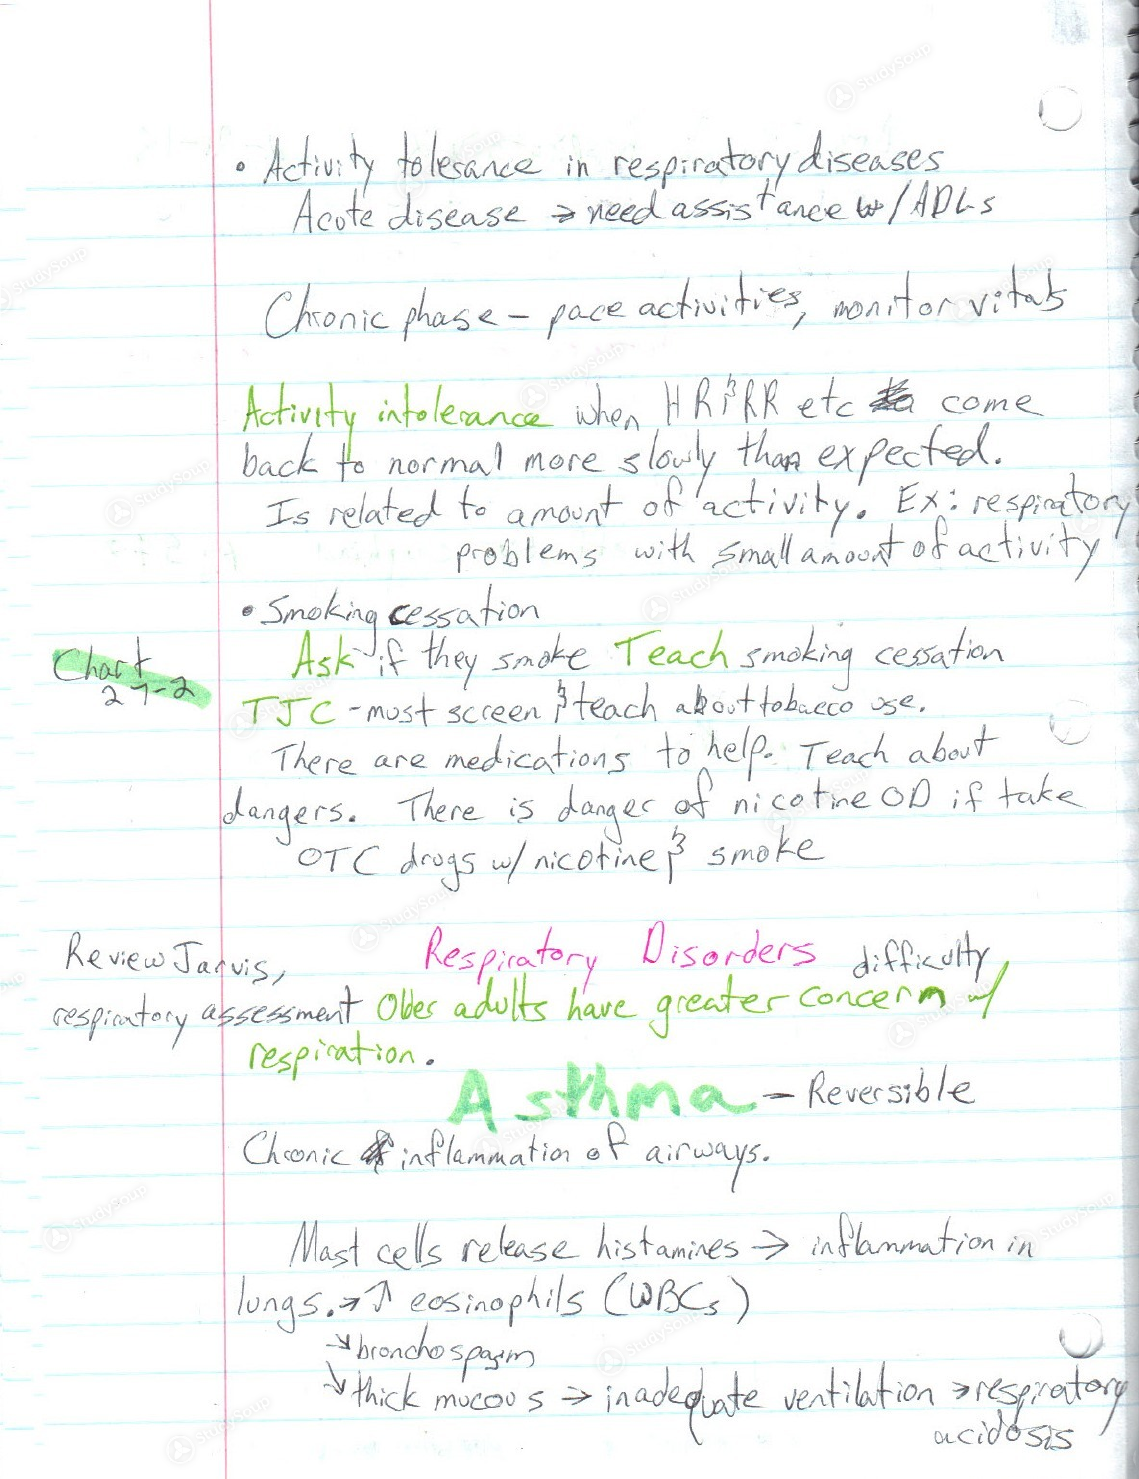 • Activity tolerance in respiratory diseases
Acute disease → need assistance w/ADLs
Chronic phase - pace activities, monitor vitals
Activity intolerance when HR & RR etc come
back to normal more slowly than expected.
Is related to amount of activity. Ex: respiratory
problems with small amount of activity
• Smoking cessation
Chart
27-2
Ask if they smoke Teach smoking cessation
TJC - must screen & teach about tobacco use.
There are medications to help. Teach about
dangers. There is danger of nicotine OD if take
OTC drugs w/ nicotine & smoke
Review Jarvis,
respiratory assessment
Respiratory Disorders
difficulty
Older adults have greater concern w/
respiration.
Asthma - Reversible
Chronic inflammation of airways.
Mast cells release histamines → inflammation in
lungs. → ↑ eosinophils (WBCs)
↘ bronchospasm
↘ thick mucous → inadequate ventilation → respiratory
acidosis
StudySoup